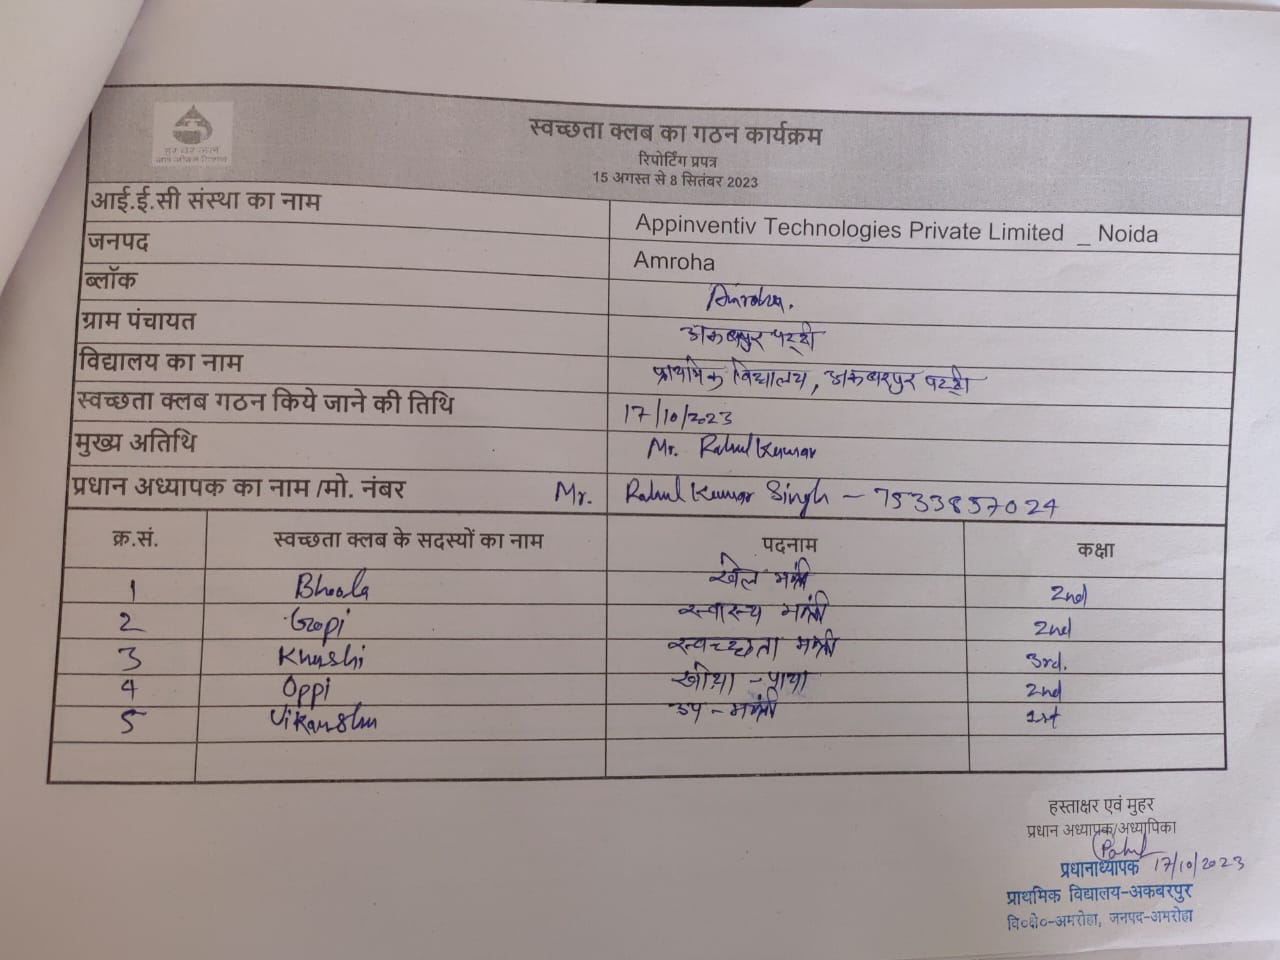 हर घर जल
जल जीवन मिशन
स्वच्छता क्लब का गठन कार्यक्रम
रिपोर्टिंग प्रपत्र
15 अगस्त से 8 सितंबर 2023
आई.ई.सी संस्था का नाम Appinventiv Technologies Private Limited _ Noida
जनपद Amroha
ब्लॉक Amroha.
ग्राम पंचायत अकबरपुर पट्टी
विद्यालय का नाम प्राथमिक विद्यालय, अकबरपुर पट्टी
स्वच्छता क्लब गठन किये जाने की तिथि 17/10/2023
मुख्य अतिथि Mr. Rahul Kumar
प्रधान अध्यापक का नाम /मो. नंबर Mr. Rahul Kumar Singh – 7533857024
क्र.सं. स्वच्छता क्लब के सदस्यों का नाम पदनाम कक्षा
1 Bhoola खेल मंत्री 2nd
2 Gopi स्वास्थ्य मंत्री 2nd
3 Khushi स्वच्छता मंत्री 3rd.
4 Oppi खोया - पाया 2nd
5 Vikanshu उप - मंत्री 1st
हस्ताक्षर एवं मुहर
प्रधान अध्यापक/अध्यापिका
Rahul
प्रधानाध्यापक 17/10/2023
प्राथमिक विद्यालय-अकबरपुर
वि०क्षे०-अमरोहा, जनपद-अमरोहा